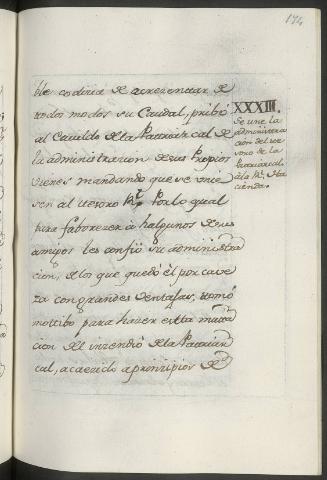 174
ble codicia de acrecentar de
todos modos su Caudal, pribó
al Cavildo de la Patriarcal de
la administracion de sus Propios
vienes mandando que se unie
sen al tesoro Rl. Por lo qual
para faborecer à halgunos de sus
amigos les confió su administra
cion, de los que quedó èl por cave
za con grandes ventajas, tomó
mottibo para hacer estta muta
cion del incendió de la Patriar
cal, acaecido a prinzipios de
XXXIII.
Se une la
administra
cion del te
soro de la
Patriarcal
à la Rl. Ha
cienda.